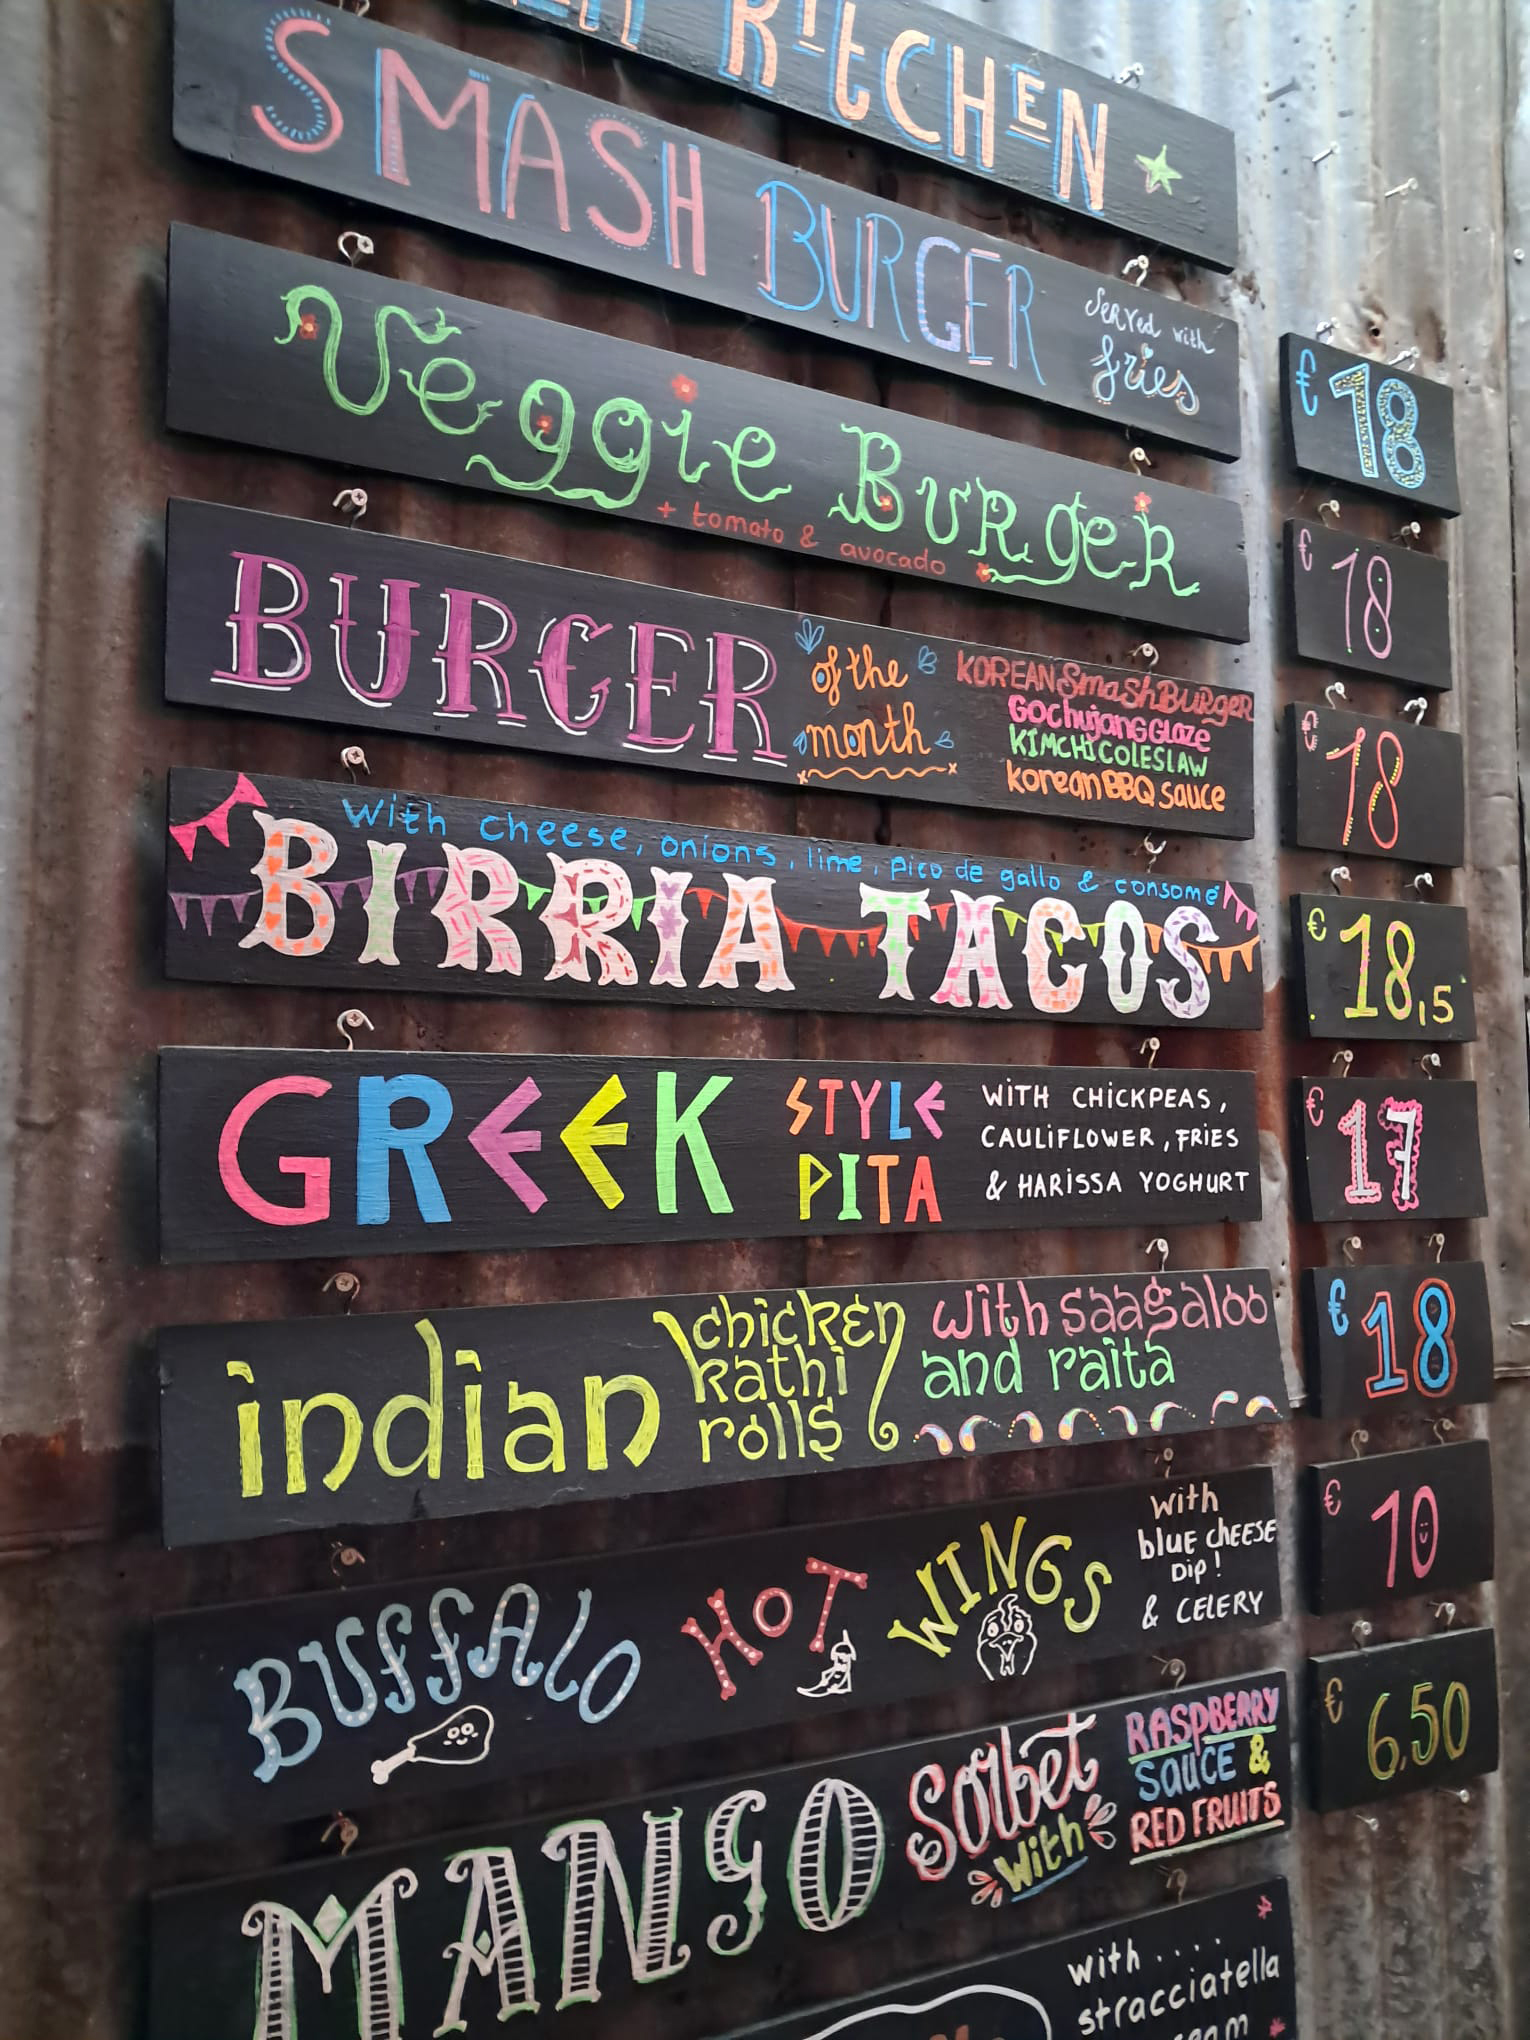 KITCHEN
SMASH BURGER served with fries
€ 18
Veggie Burger
+ tomato & avocado
€ 18
BURGER of the month
KOREAN SmashBuRger
GochujangGlaze
KIMCHI COLESLAW
KoreanBBQ sauce
€ 18
with cheese, onions, lime, pico de gallo & consomé
BIRRIA TACOS
€ 18,5
GREEK STYLE PITA
WITH CHICKPEAS,
CAULIFLOWER, FRIES
& HARISSA YOGHURT
€ 17
indian chicken kathi rolls
with saagaloo
and raita
€ 18
BUFFALO HOT WINGS
with
blue CHEESE
DIP!
& CELERY
€ 10
MANGO Sorbet with
RASPBERRY
SAUCE &
RED FRUITS
€ 6,50
with ....
stracciatella